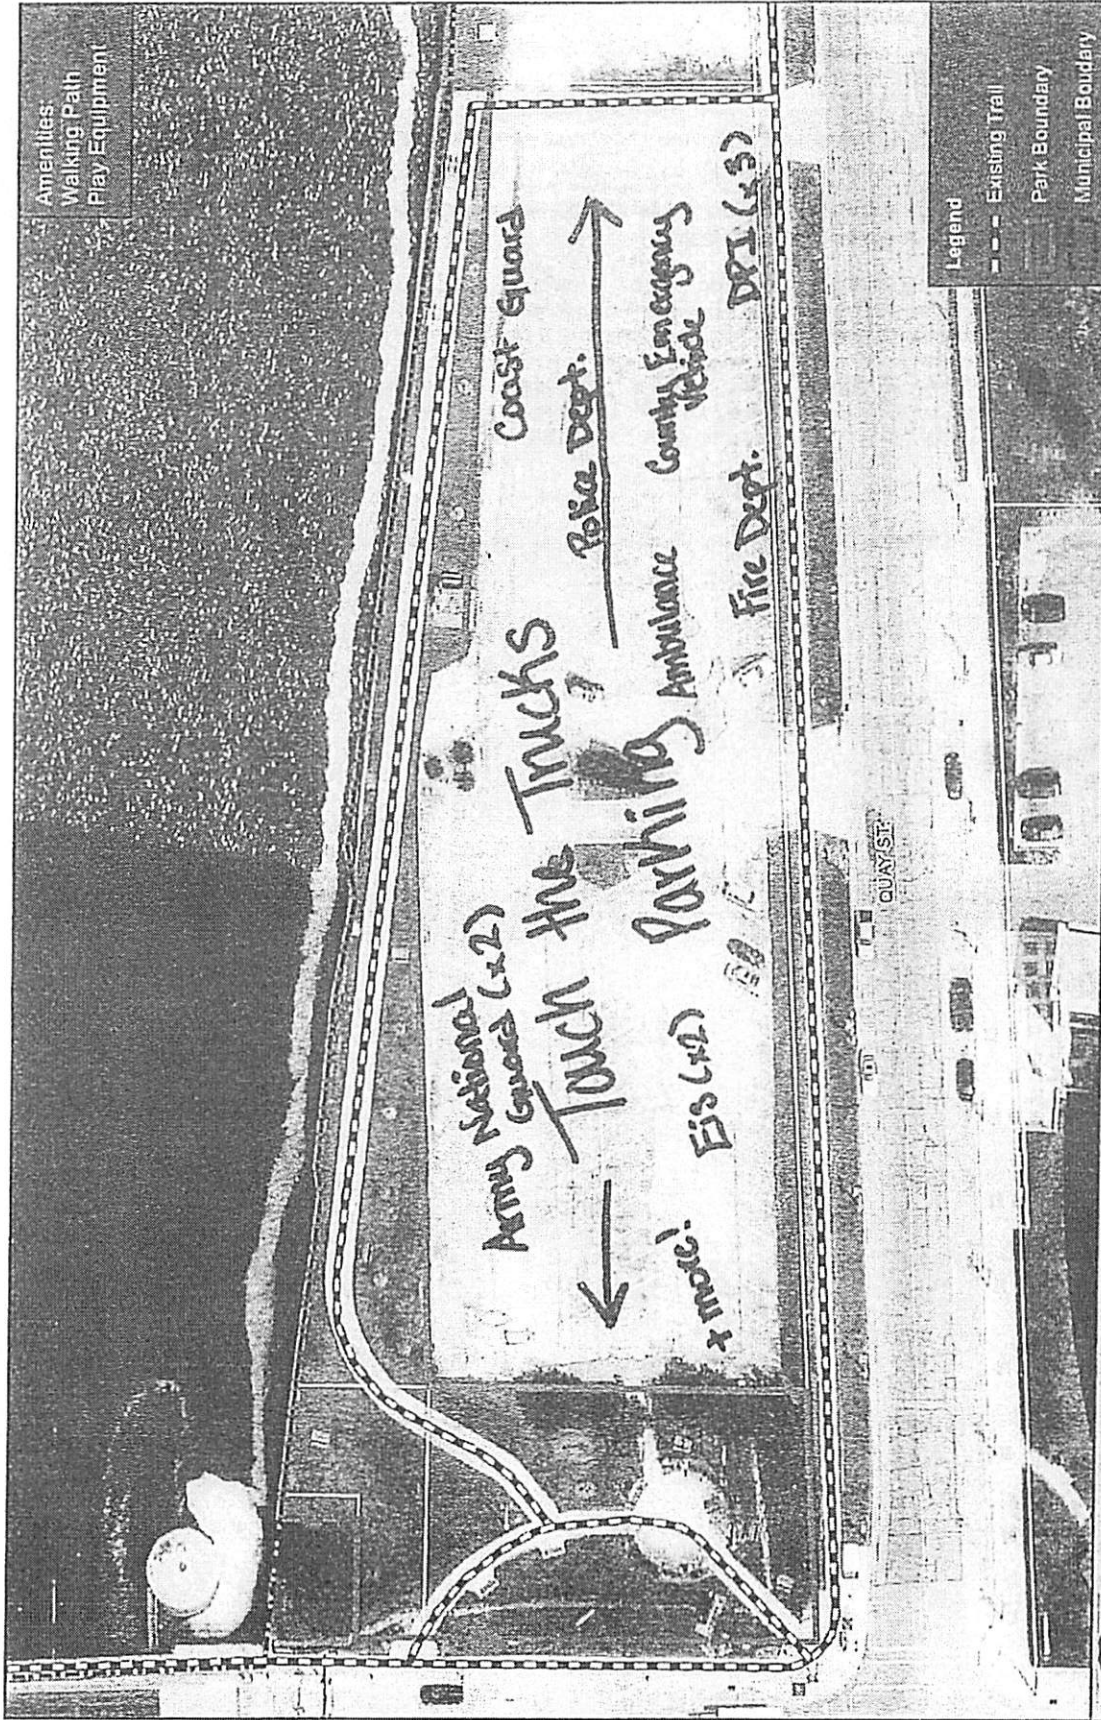 Amenities
Walking Path
Play Equipment
Army National
Guard (x2)
Coast Guard
Touch the Trucks
Police Dept.
Parking
Ambulance
County Emergency
Vehicle
+ more!
EJS (x2)
Fire Dept.
DPI (x3)
QUAY ST
Legend
Existing Trail
Park Boundary
Municipal Boudary